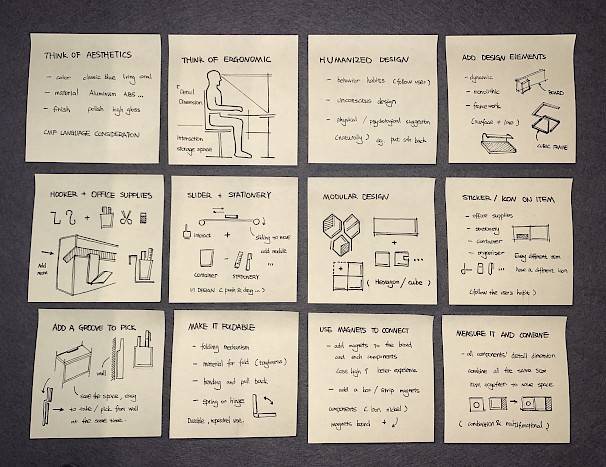 THINK OF AESTHETICS
- color classic blue living coral
- material Aluminum ABS ...
- finish polish high gloss
CMF LANGUAGE CONSIDERATION
THINK OF ERGONOMIC
Detail
Dimension
Interaction
storage space
HUMANIZED DESIGN
- behavior habits (follow user)
- unconscious design
- physical / psychological suggestion
(naturally) eg. put sth back
ADD DESIGN ELEMENTS
- dynamic
- monolithic
- framework
(surface + line)
BOARD
CUBIC FRAME
HOOKER + OFFICE SUPPLIES
+
Add
more
SLIDER + STATIONERY
interact
+
sliding to move
add module
...
CONTAINER
STATIONERY
UI DESIGN ( push & drag ... )
MODULAR DESIGN
+
...
( Hexagon / cube )
STICKER / ICON ON ITEM
- office supplies
- stationery
- container
- organizer
Every different item
have a different icon
...
(follow the user's habit)
ADD A GROOVE TO PICK
wall
save the space, easy
to take / pick from wall
at the same time.
MAKE IT FOLDABLE
- folding mechanism
- material for fold (toughness)
- bending and pull back
- spring or hinge
Durable, repeated use.
USE MAGNETS TO CONNECT
- add magnets to the board
and each components
cost high ? better experience
- add a bar / strip magnets
components ( iron, nickel )
magnets board +
MEASURE IT AND COMBINE
- all components' detail dimension
combine all the same size
ones together to save space.
( combination & multifunctional )